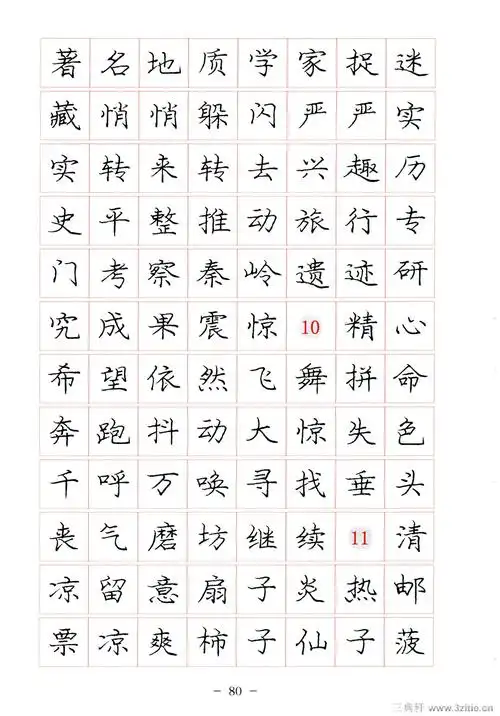 著名地质学家捉迷
藏悄悄躲闪严严实
实转来转去兴趣历
史平整推动旅行专
门考察秦岭遗迹研
究成果震惊10精心
希望依然飞舞拼命
奔跑抖动大惊失色
千呼万唤寻找垂头
丧气磨坊继续11清
凉留意扇子炎热邮
票凉爽柿子仙子菠
- 80 -
三典轩 www.3zitie.cn